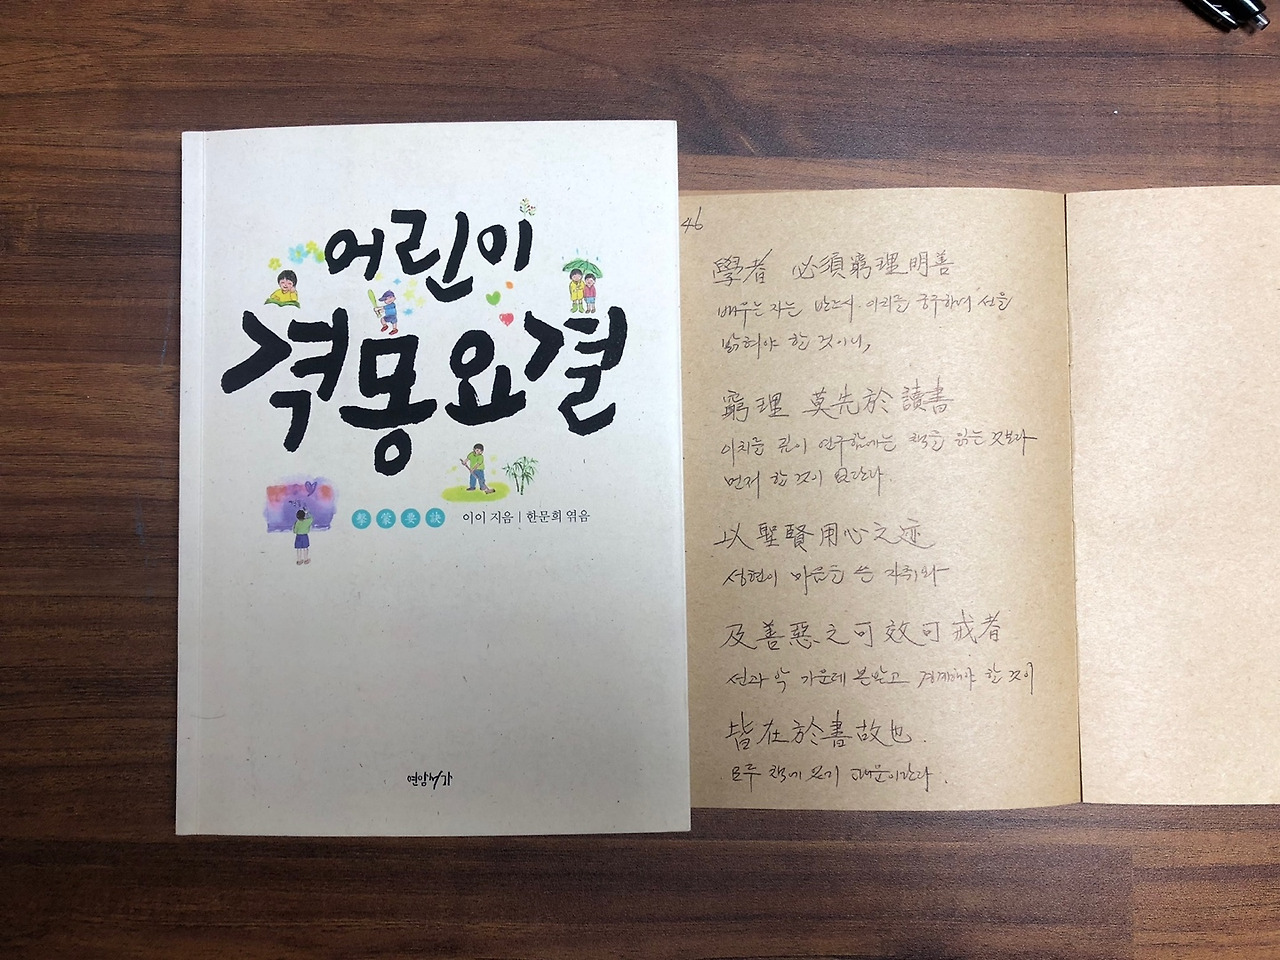 어린이
격몽요결
擊蒙要訣 이이 지음 | 한문희 엮음
연암서가
46
學者 必須窮理明善
배우는 자는 반드시 이치를 궁구하여 선을
밝혀야 할 것이니,
窮理 莫先於讀書
이치를 깊이 연구함에는 책을 읽는 것보다
먼저 할 것이 없단다.
以聖賢用心之迹
성현이 마음을 쓴 자취와
及善惡之可效可戒者
선과 악 가운데 본받고 경계해야 할 것이
皆在於書故也.
모두 책에 있기 때문이란다.